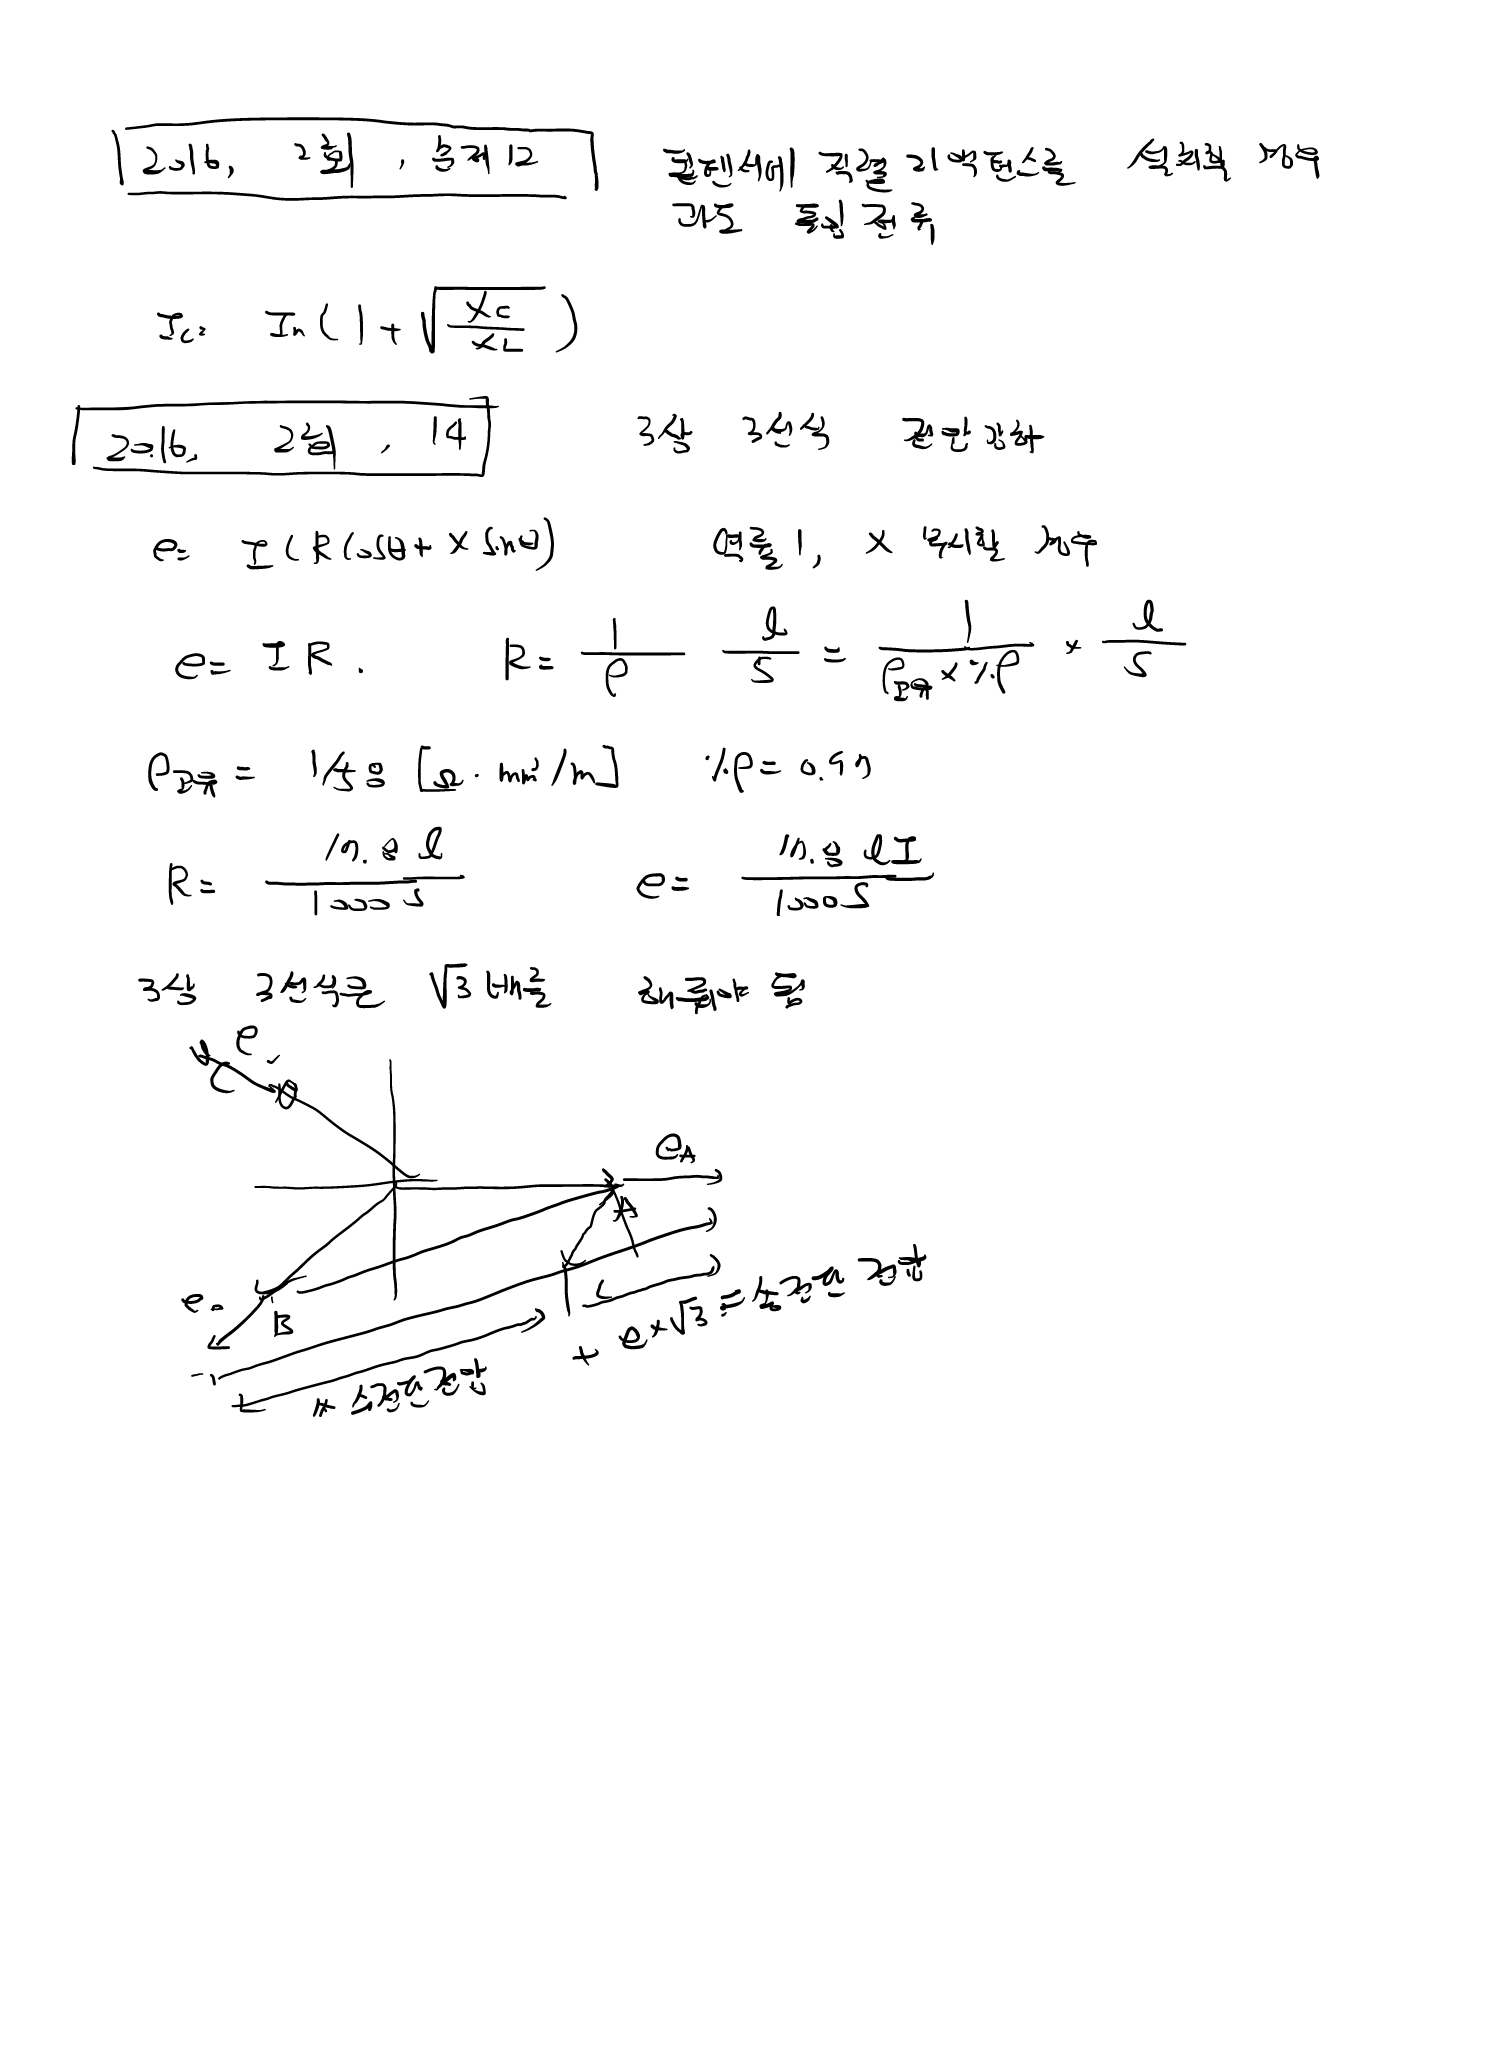 2016, 2회, 문제 12
콘덴서에 직렬 리액턴스를 설치할 경우
과도 돌입전류
Ic= In(1+√(Xc/XL))
2016, 2회, 14
3상 3선식 전압강하
e= I(Rcosθ+Xsinθ) 역률 1, X 무시할 경우
e= IR. R= 1/ρ l/S = 1/(ρ고유×%ρ) × l/S
ρ고유 = 1/58 [Ω·mm²/m] %ρ= 0.97
R= 17.8 l/1000S e= 17.8 lI/1000S
3상 3선식은 √3배를 해줘야 됨
e
C
eA
A
e
B
+ e×√3 = 송전단 전압
수전단전압